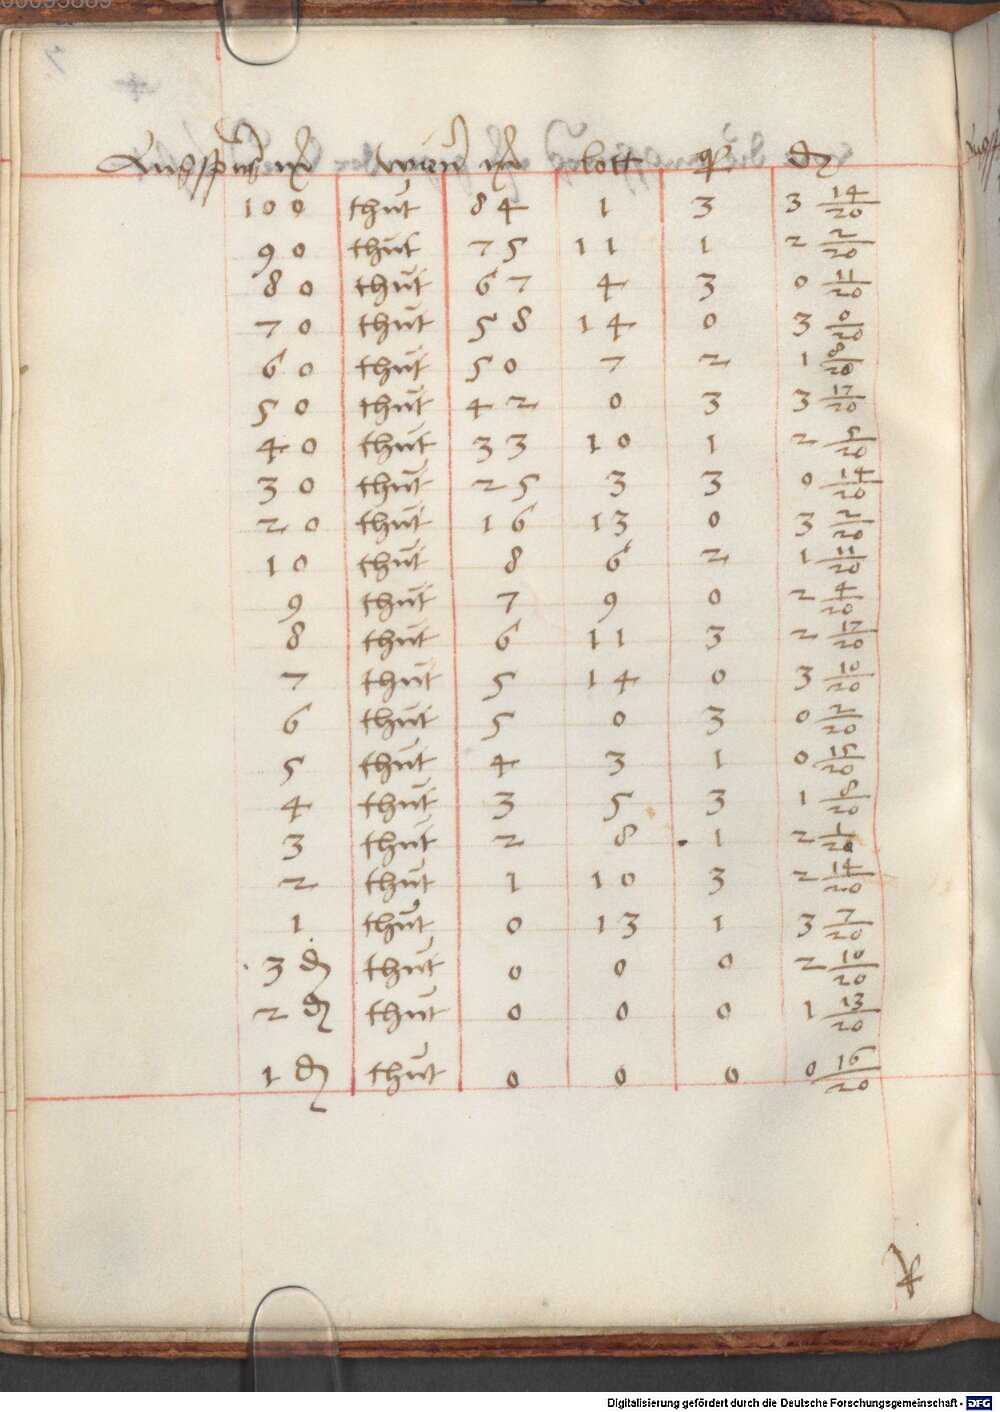 Augspurg mr wien mr lott q dn
100 thut 84 1 3 3 14/20
90 thut 75 11 1 2 2/20
80 thut 67 4 3 0 11/20
70 thut 58 14 0 3 0/20
60 thut 50 7 2 1 8/20
50 thut 42 0 3 3 17/20
40 thut 33 10 1 2 5/20
30 thut 25 3 3 0 14/20
20 thut 16 13 0 3 2/20
10 thut 8 6 2 1 11/20
9 thut 7 9 0 2 4/20
8 thut 6 11 3 2 17/20
7 thut 5 14 0 3 10/20
6 thut 5 0 3 0 2/20
5 thut 4 3 1 0 15/20
4 thut 3 5 3 1 8/20
3 thut 2 8 1 2 1/20
2 thut 1 10 3 2 14/20
1 thut 0 13 1 3 7/20
3 dn thut 0 0 0 2 10/20
2 dn thut 0 0 0 1 13/20
1 dn thut 0 0 0 0 16/20
Digitalisierung gefördert durch die Deutsche Forschungsgemeinschaft - DFG